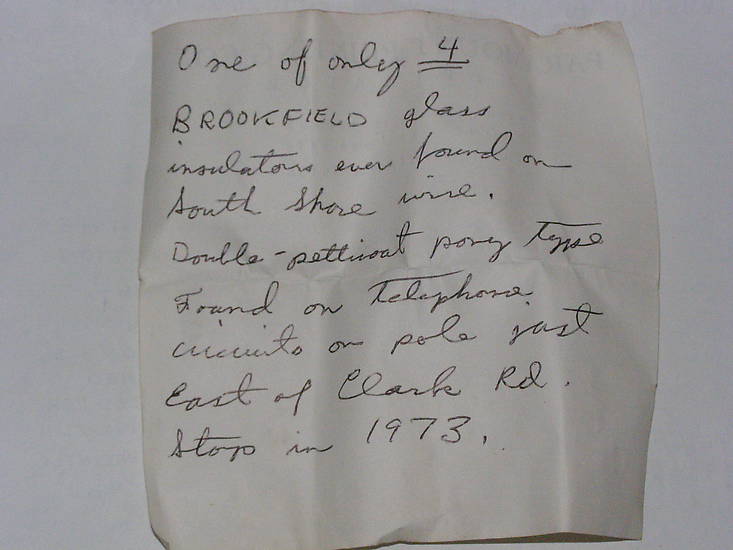 One of only 4
BROOKFIELD glass
insulators ever found on
South Shore wire.
Double-petticoat pony type
Found on telephone
circuits on pole just
East of Clark Rd.
Stop in 1973.